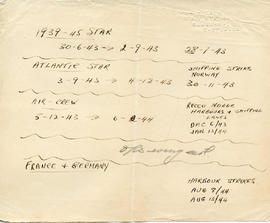 1939-45 STAR
30-6-43 → 2-9-43
28-7-43
ATLANTIC STAR
SHIPPING STRIKE
NORWAY
3-9-43 → 4-12-43
30-11-43
AIR-CREW
RECCO
HARBOURS & SHIPPING
LANES
5-12-43 → 6-
DEC 6/43
JAN 13/44
FRANCE & GERMANY
HARBOUR STRIKES
AUG 7/44
AUG 13/44